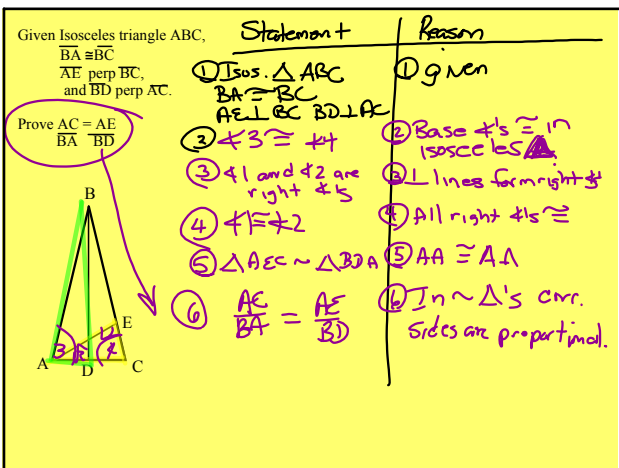 Given Isosceles triangle ABC,
BA ≅ BC
AE perp BC,
and BD perp AC.
Prove AC = AE
BA BD
B
E
A
D
C
3
4
Statement
Reason
① Isos. △ ABC
BA ≅ BC
AE ⊥ BC BD ⊥ AC
① given
② ∡3 ≅ ∡4
② Base ∡'s ≅ in
isosceles △
③ ∡1 and ∡2 are
right ∡'s
③ ⊥ lines form right ∡'s
④ ∡1 ≅ ∡2
④ All right ∡'s ≅
⑤ △AEC ~ △BDA
⑤ AA ≅ AA
⑥ AC/BA = AE/BD
⑥ In ~ △'s corr.
sides are proportional.